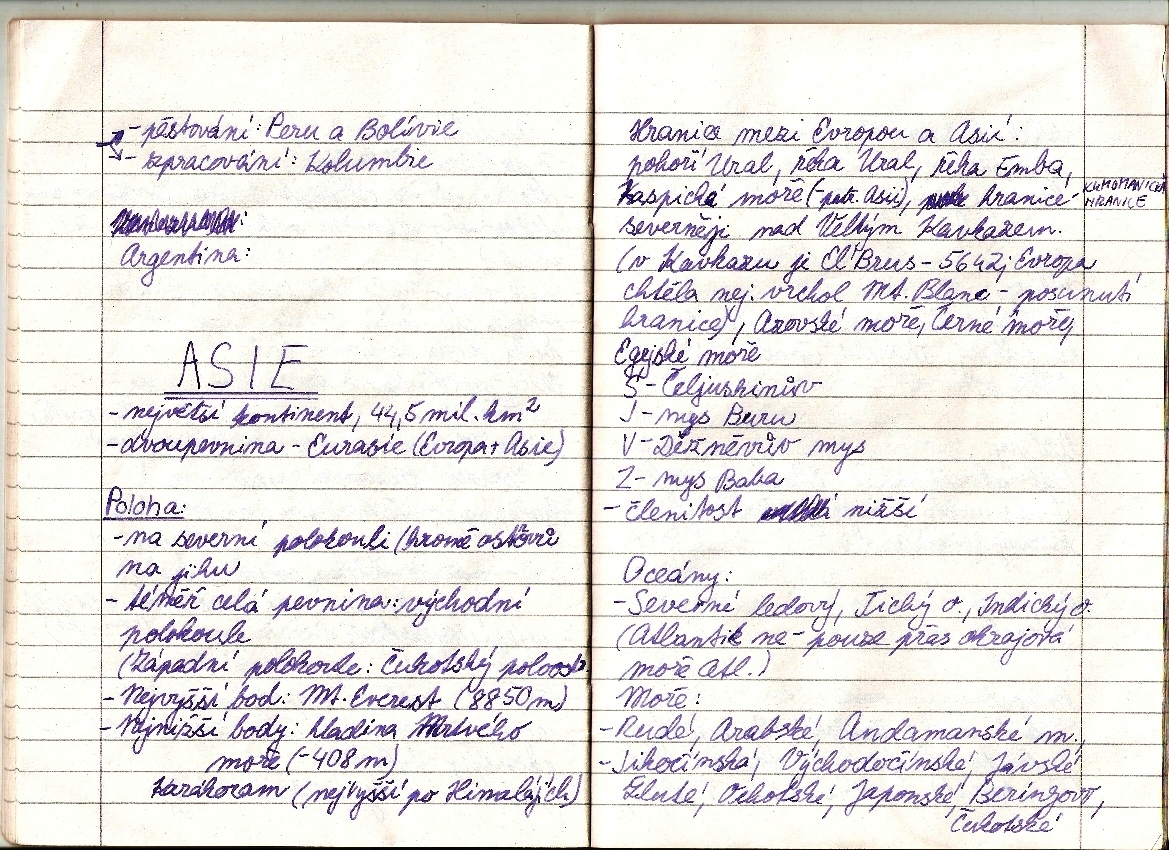 - pěstování: Peru a Bolívie
- zpracování: Kolumbie
Argentina:
ASIE
- největší kontinent, 44,5 mil. km²
- dvoupevnina - Eurasie (Evropa + Asie)
Poloha:
- na severní polokouli (kromě ostrovů
na jihu
- téměř celá pevnina: východní
polokoule
(Západní polokoule: Čukotský poloos.
- Nejvyšší bod: Mt. Everest (8850 m)
- Nejnižší body: hladina Mrtvého
moře (-408 m)
Karákoram (nejvyšší po Himalájích)
Hranice mezi Evropou a Asií:
pohoří Ural, řeka Ural, řeka Emba,
Kaspické moře (- patr. Asii), hranice
KUMOMANYČSKÁ
HRANICE
severněji nad Velkým Kavkazem.
(v Kavkazu je El'Brus - 5642; Evropa
chtěla nej. vrchol Mt. Blanc - posunutí
hranice), Azovské moře, Černé moře,
Egejské moře
S - Čeljuskinův
J - mys Buru
V - Děžněvův mys
Z - mys Baba
- členitost nižší
Oceány:
- Severně ledový, Tichý o., Indický o.
(Atlantik ne - pouze přes okrajová
moře Atl.)
Moře:
- Rudé, Arabské, Andamanské m.,
- Jihočínské, Východočínské, Jávské
Žluté, Ochotské, Japonské, Beringovo,
Čukotské